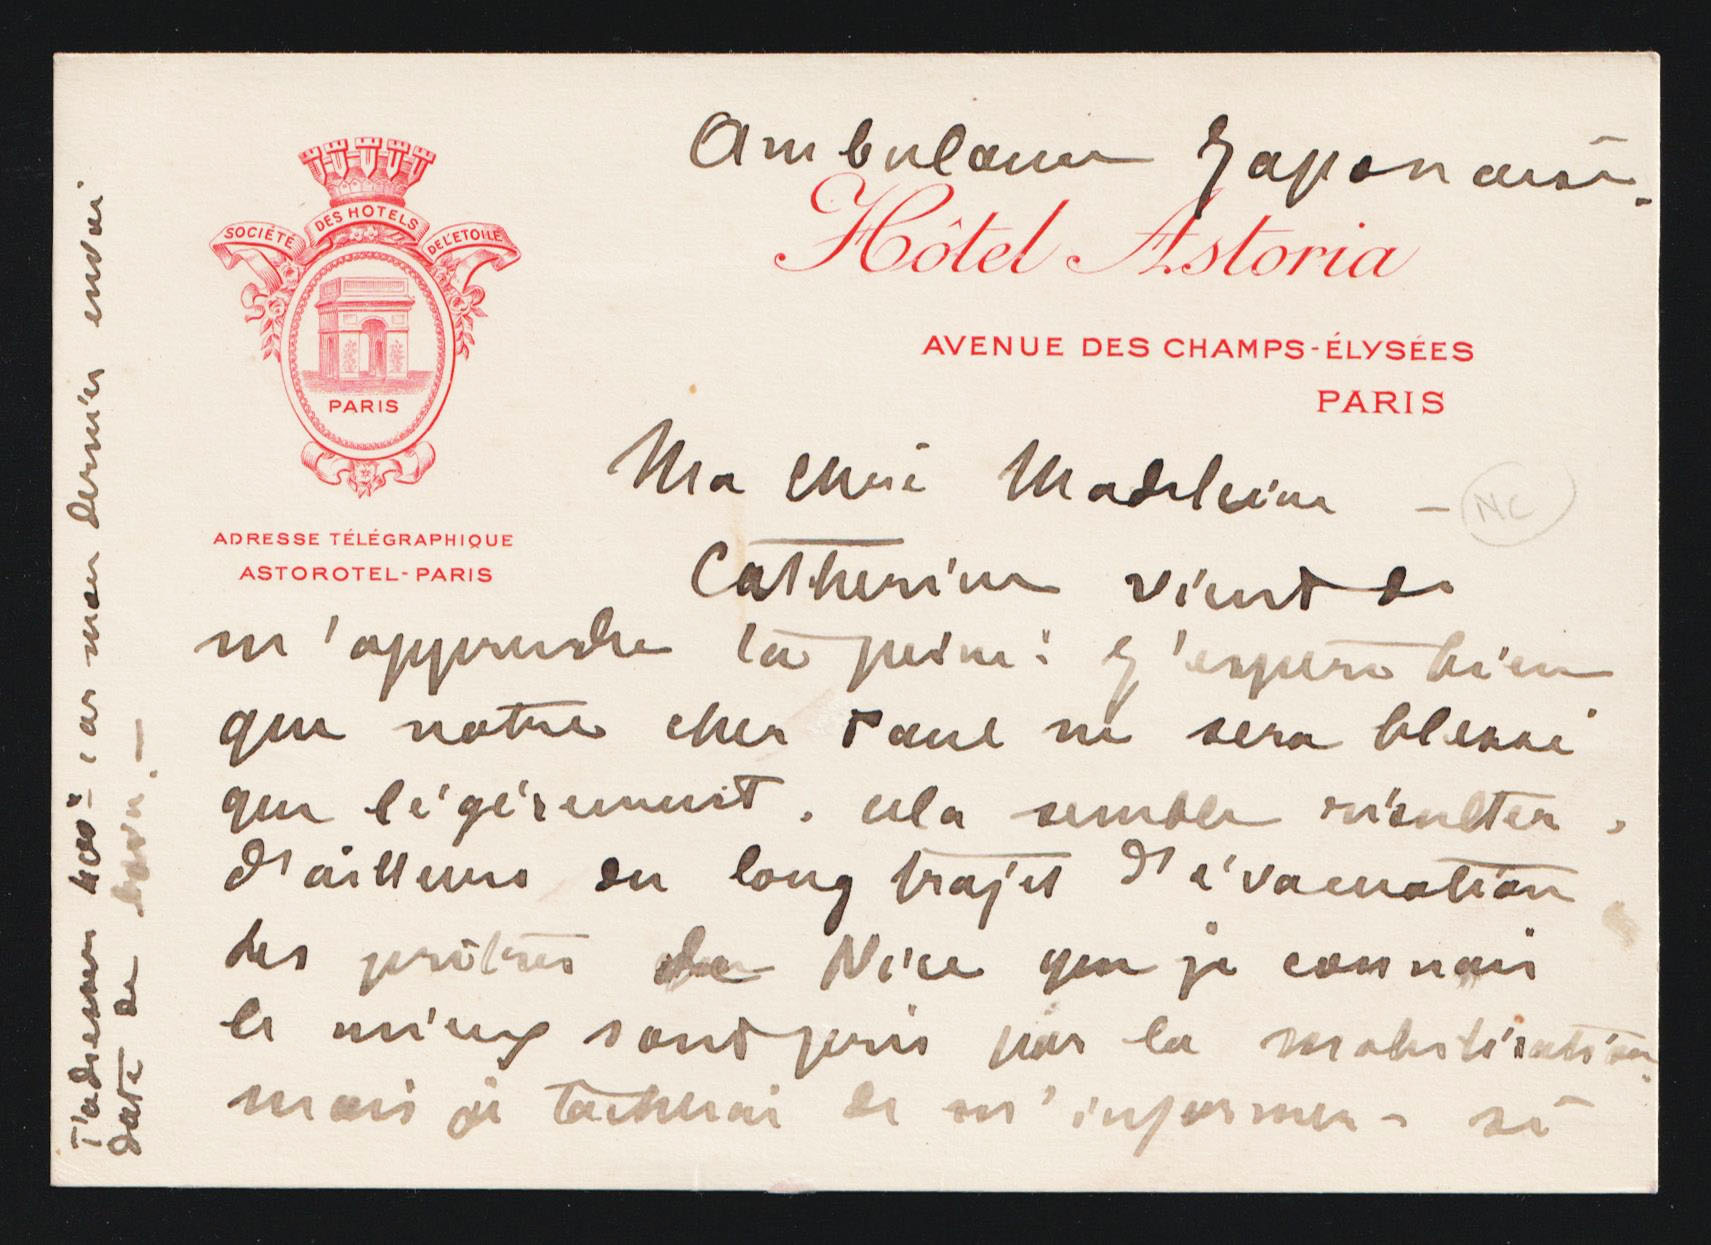 Ambulance Japonaise.
SOCIÉTÉ DES HOTELS DE L'ETOILE
PARIS
Hôtel Astoria
AVENUE DES CHAMPS-ÉLYSÉES
PARIS
ADRESSE TÉLÉGRAPHIQUE
ASTOROTEL-PARIS
Ma chère Madeleine –
NC
Catherine vient de
m'apprendre ta peine: j'espère bien
que notre cher Paul ne sera blessé
que légèrement. cela semble résulter
d'ailleurs du long trajet d'évacuation
les prêtres de Nice que je connais
le mieux sont pris par la mobilisation
mais je tacherai de m'informer – si
T'adresser 400 car mon dernier envoi
date de